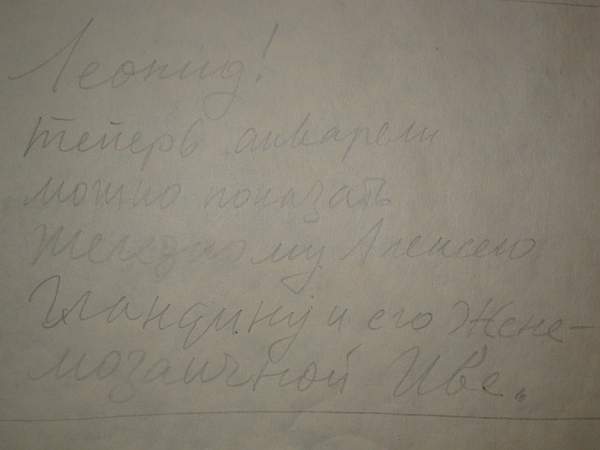 Леонид!
Теперь акварели
можно показать
Железному Алексею
Гландину и его Жене-
мозаичной Иве.